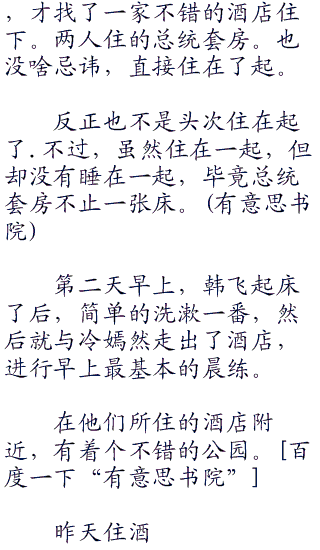 ，才找了一家不错的酒店住
下。两人住的总统套房。也
没啥忌讳，直接住在了起。
反正也不是头次住在起
了.不过，虽然住在一起，但
却没有睡在一起，毕竟总统
套房不止一张床。(有意思书
院)
第二天早上，韩飞起床
了后，简单的洗漱一番，然
后就与冷嫣然走出了酒店，
进行早上最基本的晨练。
在他们所住的酒店附
近，有着个不错的公园。[百
度一下“有意思书院”]
昨天住酒